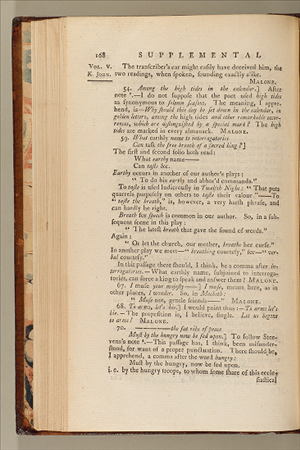 168 SUPPLEMENTAL
VOL. V. The transcriber's ear might easily have deceived him, the
K. JOHN. two readings, when spoken, sounding exactly alike.
MALONE.
54. Among the high tides in the calendar.] After
note .—I do not suppose that the poet used high tides
as synonymous to solemn seasons. The meaning, I appre-
hend, is—Why should this day be set down in the calendar, in
golden letters, among the high tides and other remarkable occur-
rences, which are distinguished by a special mark? The high
tides are marked in every almanack. MALONE.
59. What earthly name to interrogatories
Can task the free breath of a sacred king?]
The first and second folio both read:
What earthy name——
Can taste &c.
Earthy occurs in another of our author's plays:
" To do his earthy and abhor'd commands."
To taste is used ludicrously in Twelfth Night: " That puts
quarrels purposely on others to taste their valour."—To
" taste the breath," is, however, a very harsh phrase, and
can hardly be right.
Breath for speech is common in our author. So, in a sub-
sequent scene in this play:
" The latest breath that gave the sound of words."
Again:
" Or let the church, our mother, breathe her curse."
In another play we meet—" breathing courtesy," for—" ver-
bal courtesy."
In this passage there should, I think, be a comma after in-
terrogatories.—What earthly name, subjoined to interroga-
tories, can force a king to speak and answer them? MALONE.
67. I muse your majesty——] I muse, means here, as in
other places, I wonder. So, in Macbeth:
" Muse not, gentle friends——" MALONE.
68. To arms, let's hie.] I would point thus:—To arms let's
hie.—The proposition is, I believe, single. Let us begone
to arms! MALONE.
70. ————the fat ribs of peace
Must by the hungry now be fed upon.] To follow Stee-
vens's note .—This passage has, I think, been misunder-
stood, for want of a proper punctuation. There should be,
I apprehend, a comma after the word hungry:
Must by the hungry, now be fed upon.
i. e. by the hungry troops, to whom some share of this eccle-
siastical